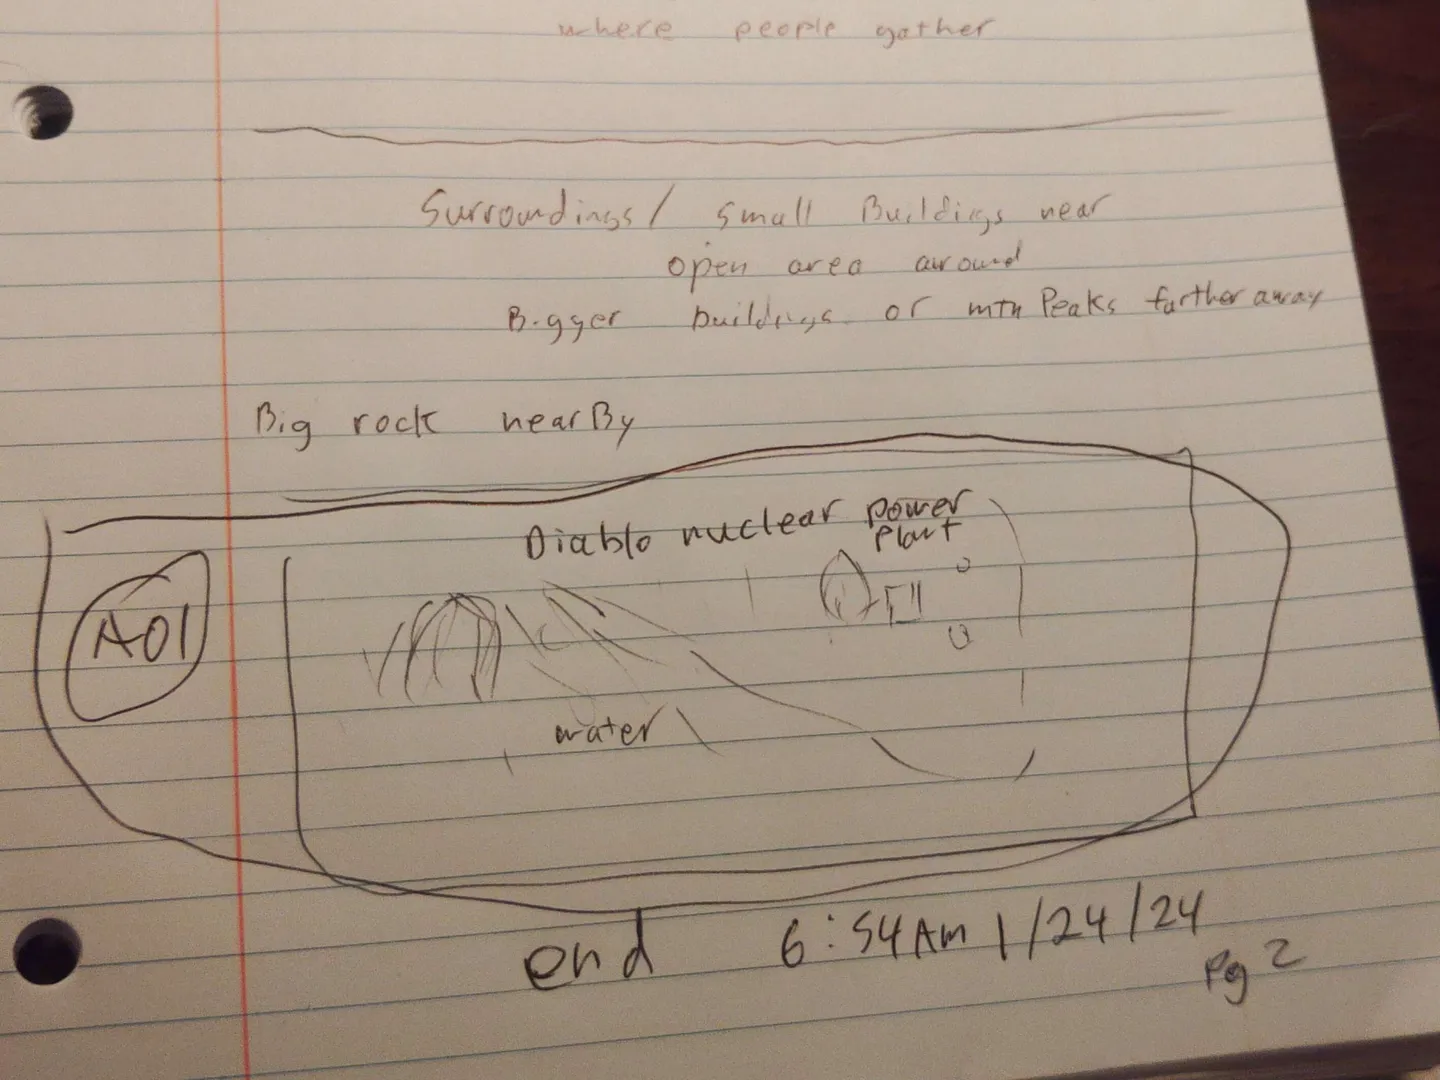 where people gather
Surroundings/ small Buildigs near
open area around
Bigger buildings or mtn Peaks farther away
Big rock nearBy
Diablo nuclear power
plant
AOI
water
end 6:54Am 1/24/24
Pg 2